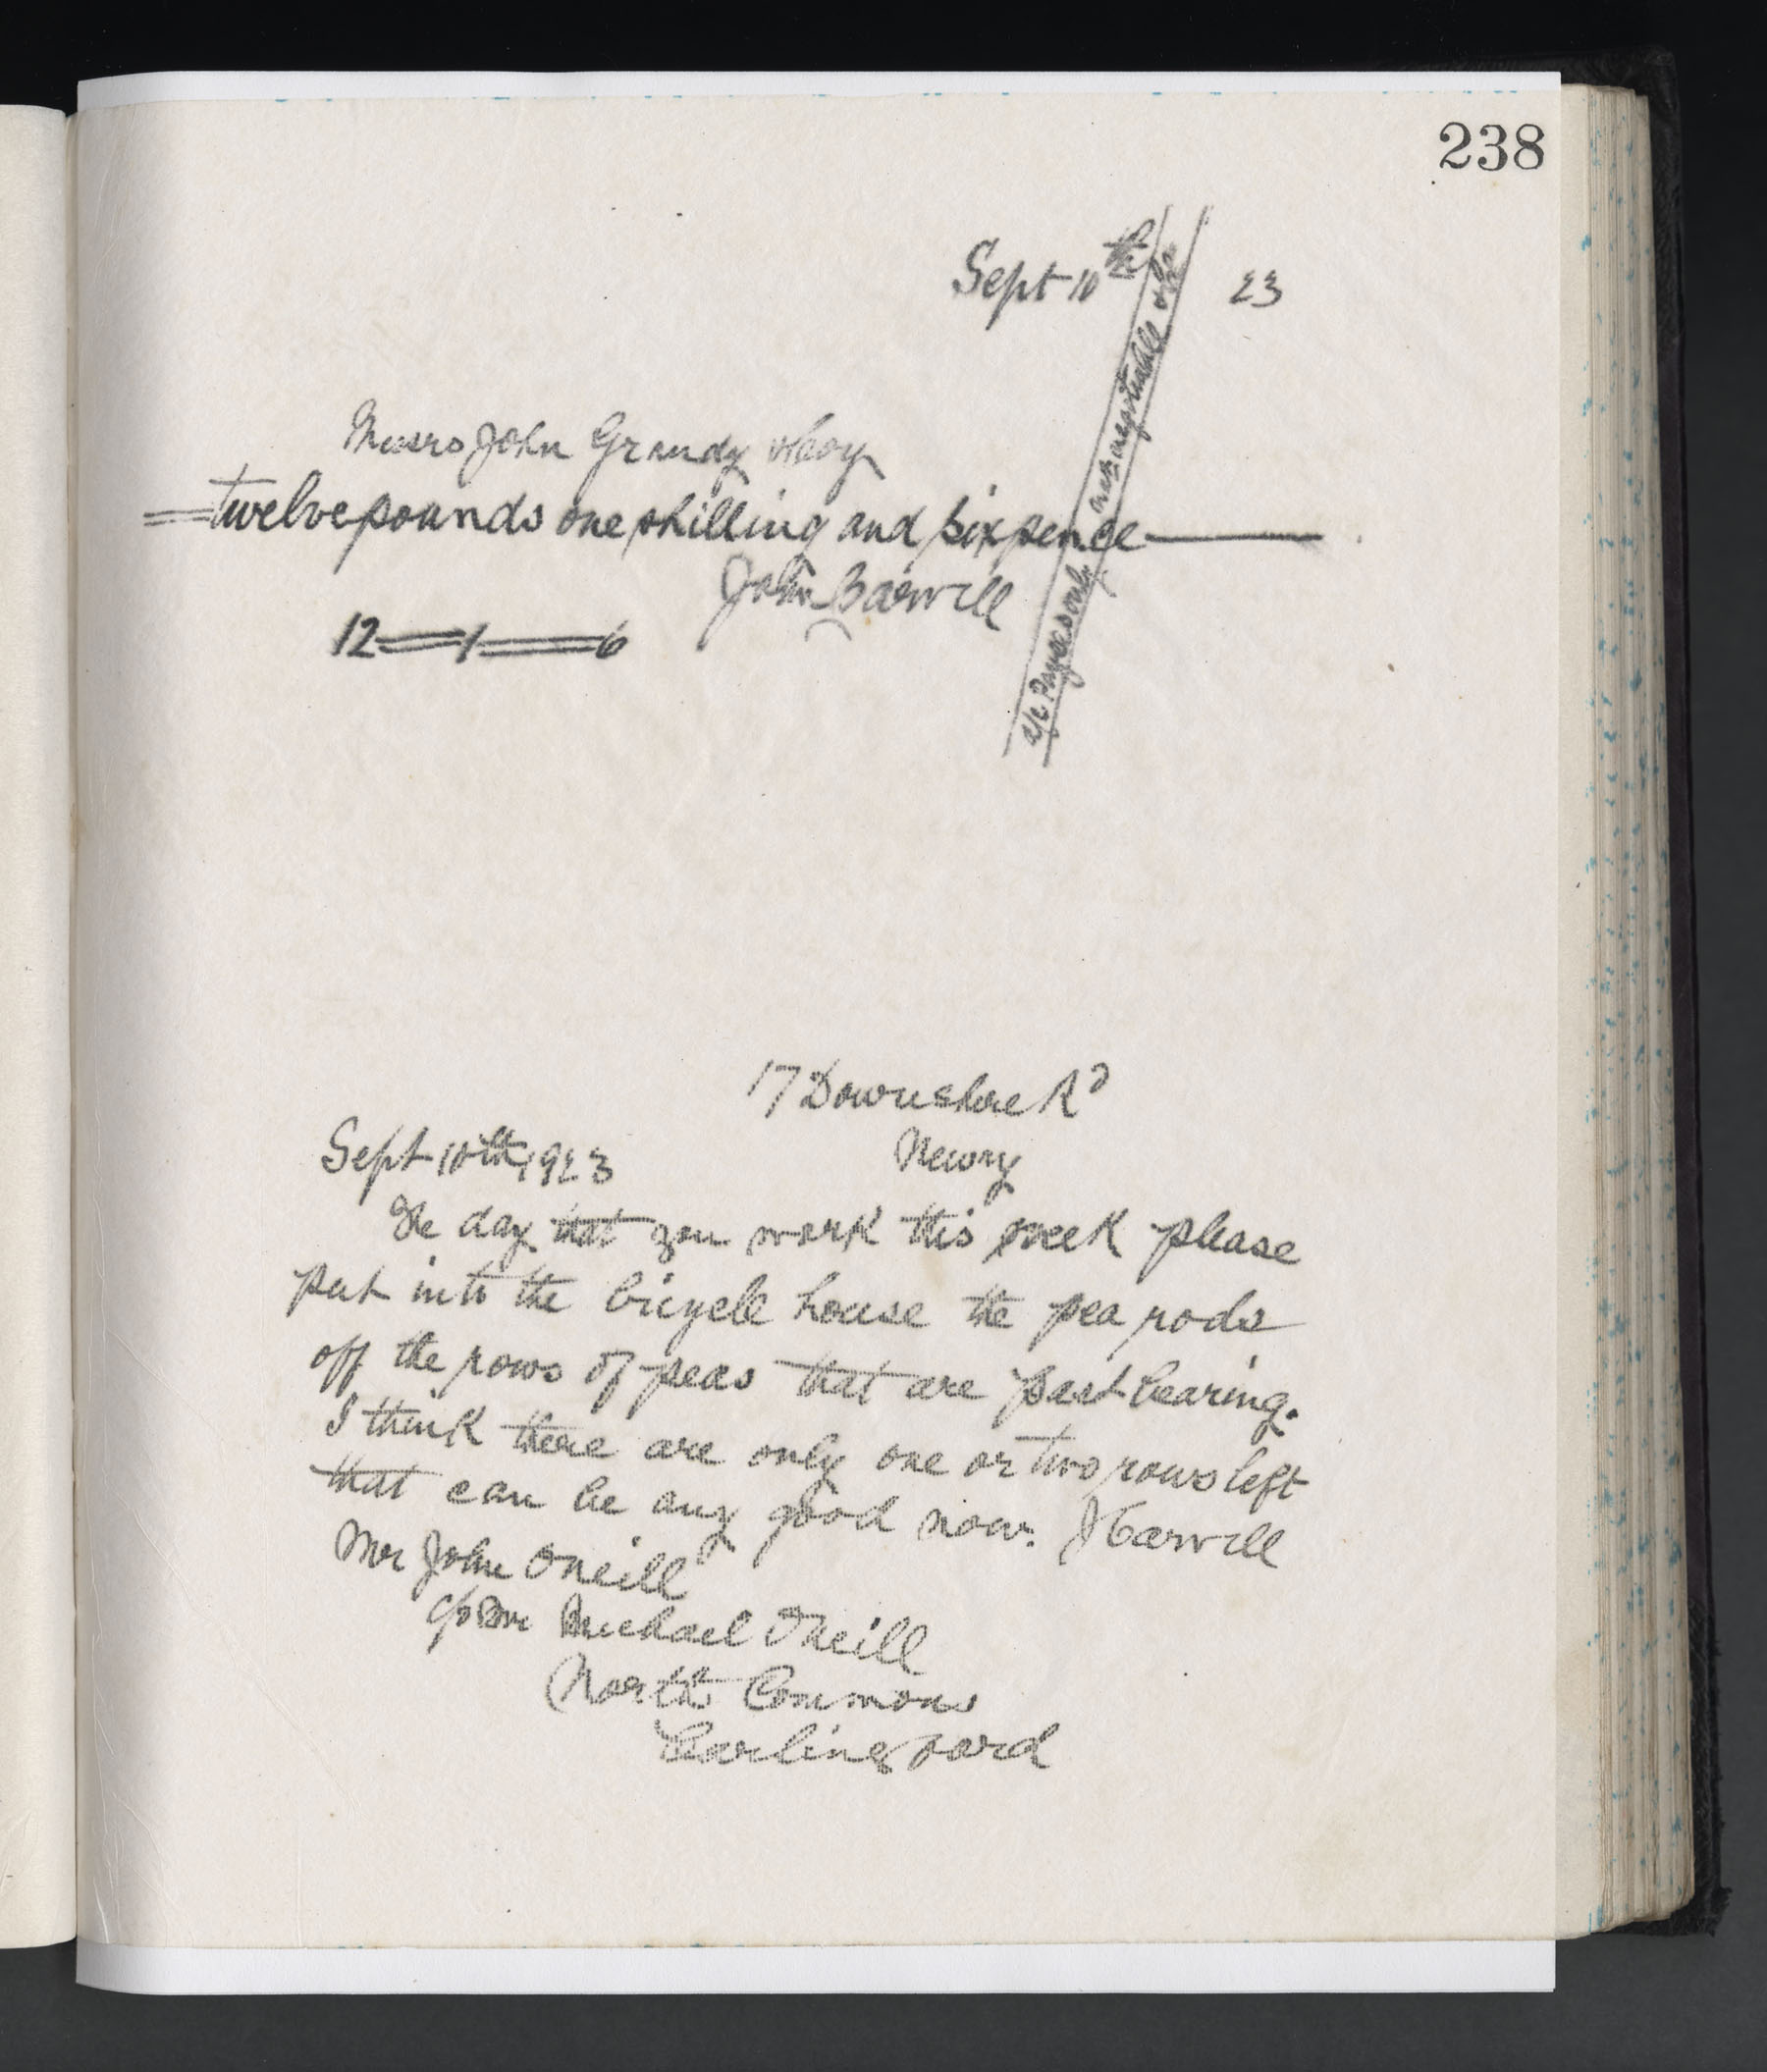 238
Sept 10th 23
a/c Payees only not negotiable & Co
Messrs John Grandy & Coy
twelve pounds one shilling and sixpence
John Barwill
12 — 1 — 6
17 Downshire Rd
Newry
Sept 10th 1923
The day that you work this week please
put into the bicycle house the pea rods
off the rows of peas that are past bearing.
I think there are only one or two rows left
that can be any good now. J Carvill
Mr John O'Neill
c/o Mr Michael O'Neill
North Commons
Carlingford